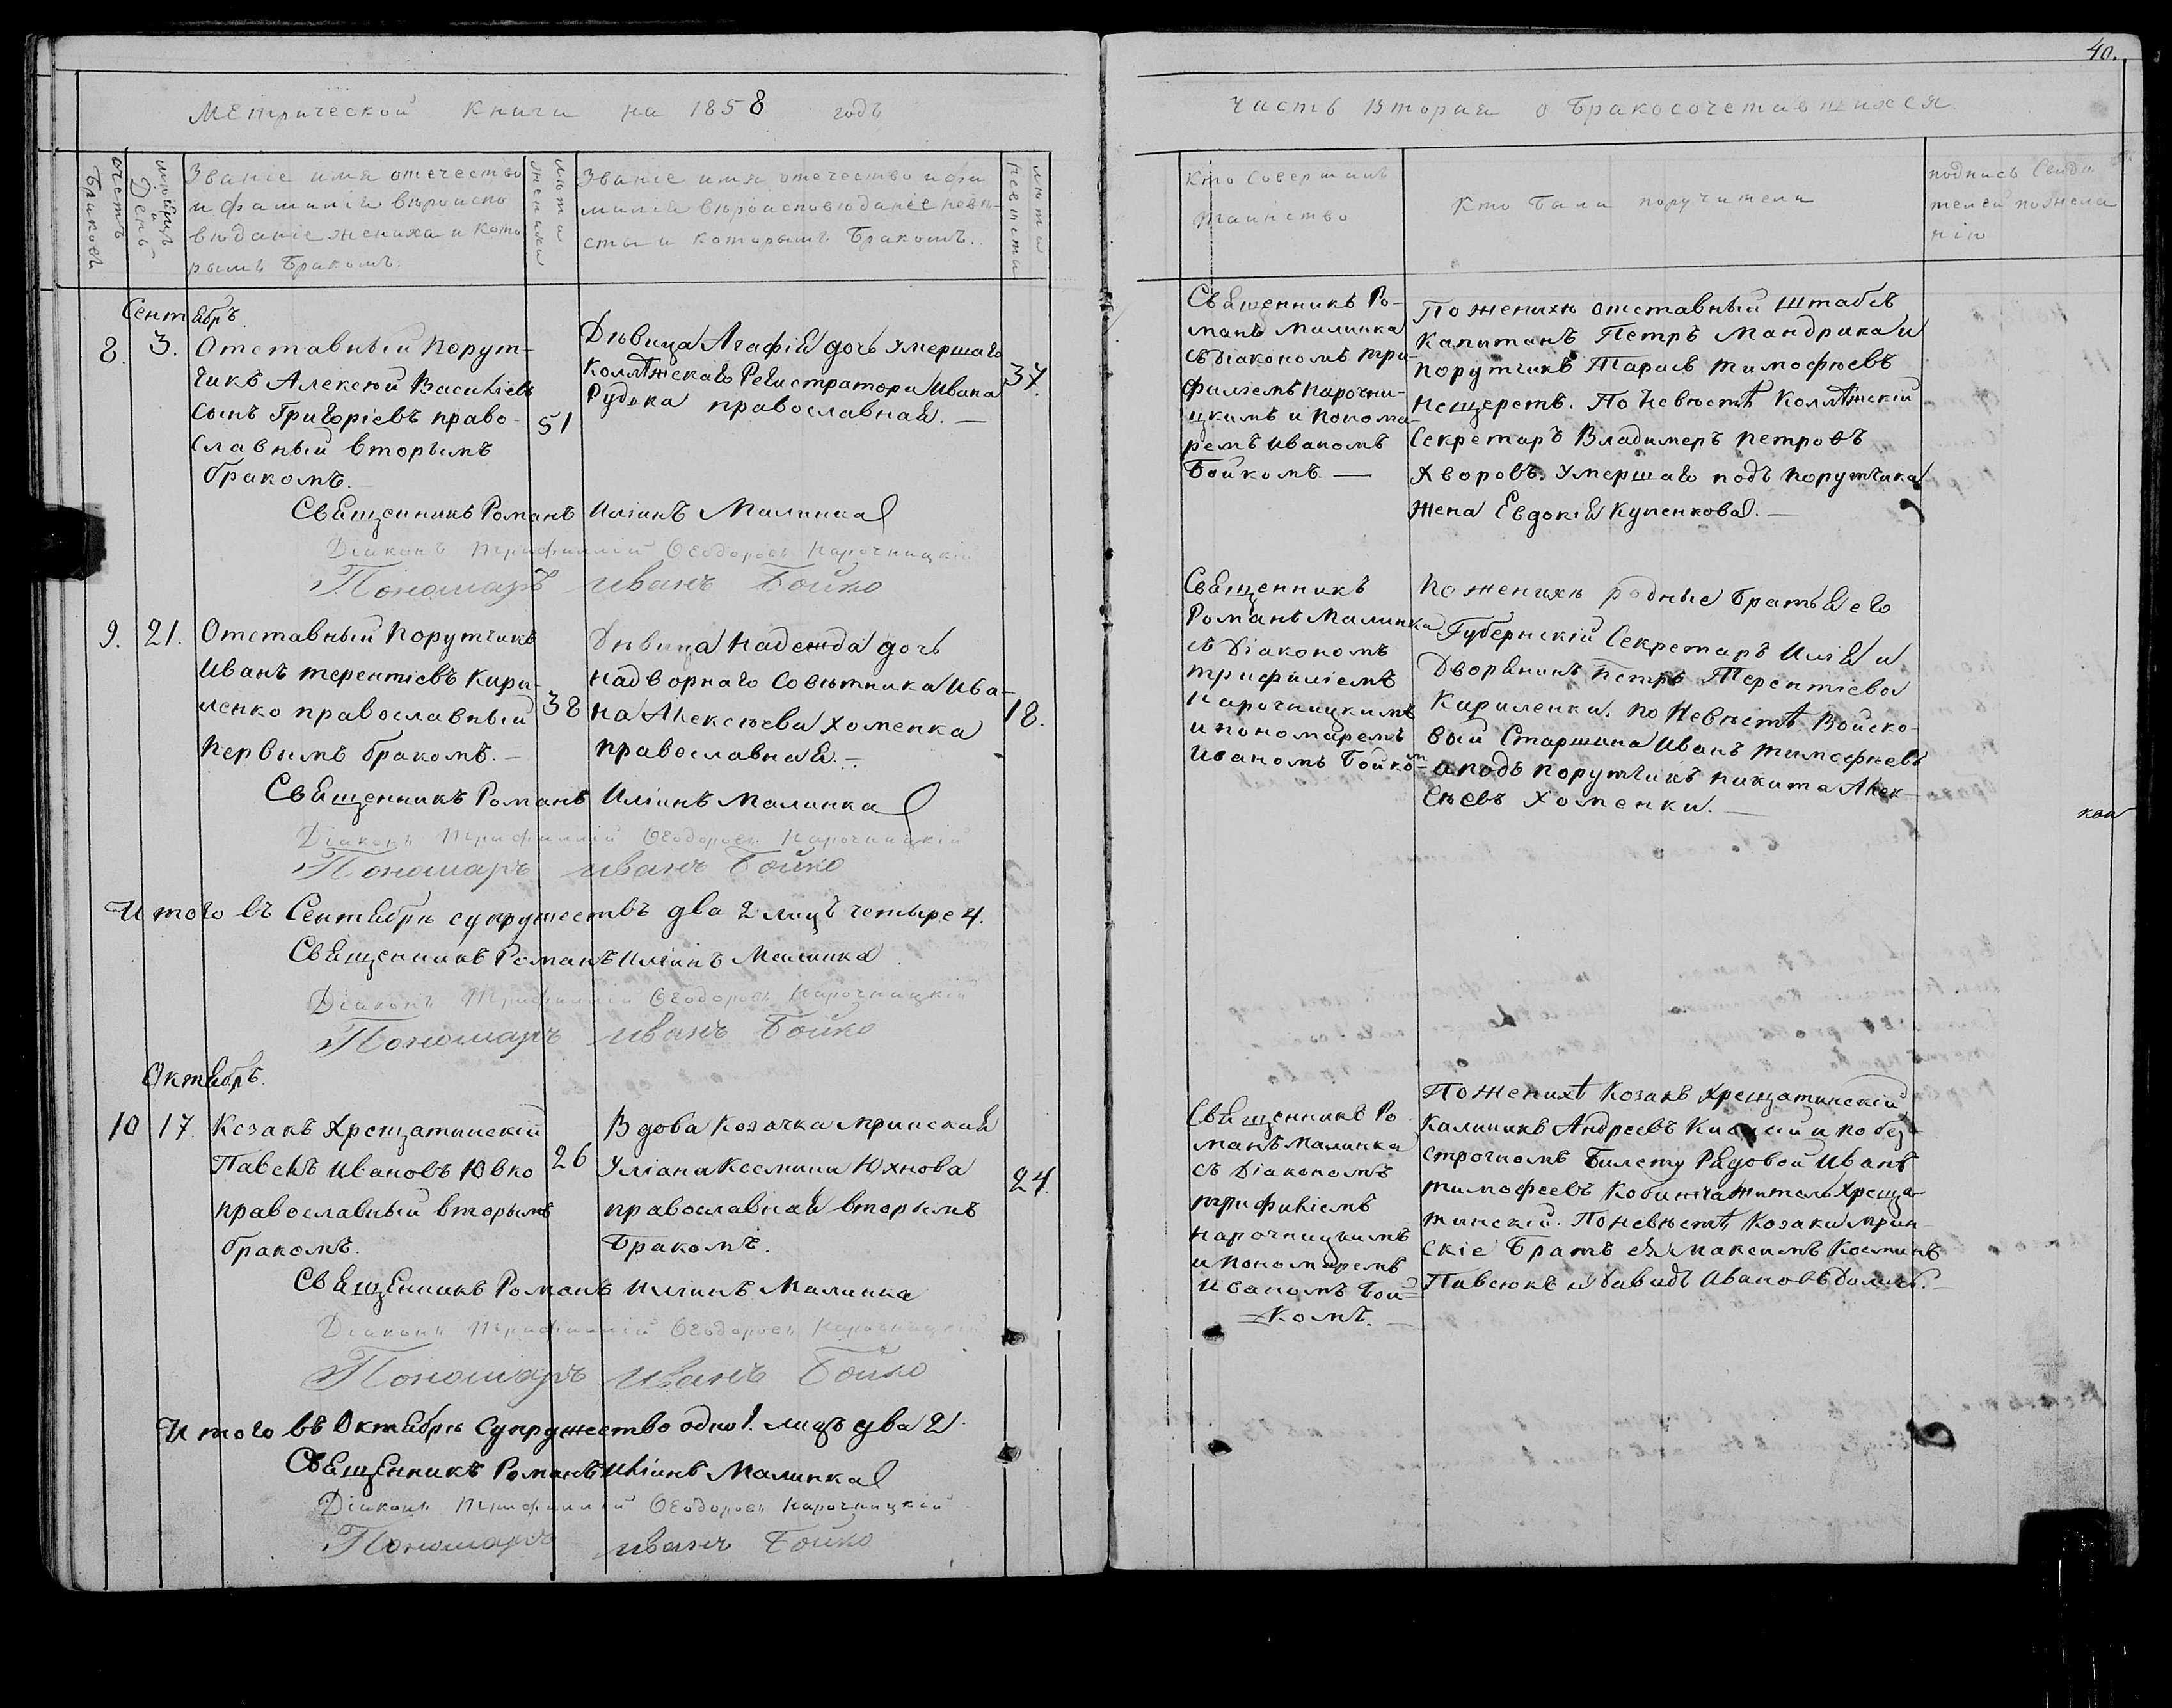 40.
Метрической книги на 1858 годъ
Часть Вторая о Бракосочетавшихся
Счетъ Браковъ
Мѣсяцъ и День
Званіе имя отечество
и фамилія вѣроиспо
вѣданіе жениха и кото
рымъ Бракомъ.
Лѣта жениха
Званіе имя, отечество и фа
милія вѣроисповѣданіе невѣ-
сты и которымъ Бракомъ.
Лѣта невѣсты
Кто Совершалъ
таинство
Кто Были поручители
подпись Свидѣ
телей по жела
нію
Сентябрь.
8. 3. Отставный Порут-
чикъ Алексѣй Василіевъ
сынъ Григоріевъ право-
славный вторымъ
бракомъ.
51
Дѣвица Агафія дочь умершаго
Коллѣжскаго Регистратора Ивана
Рудака православная.
37.
Священникъ Ро-
манъ Малинка
съ Діакономъ Три-
филіемъ Нарочни-
цкимъ и Понома-
ремъ Иваномъ
Бойкомъ.
По женихѣ отставный штабсъ
Капитанъ Петръ Мандрика и
порутчикъ Тарасъ Тимофѣевъ
Нещеретъ. По Невѣстѣ Коллѣжскій
Секретарь Владимеръ Петровъ
Хворовъ. Умершаго подъ порутчика
жена Евдокія Купенкова.
Священникъ Романъ Иліинъ Малинка
Діаконъ Трифиллій Ѳеодоровъ Нарочницкій
Пономарь Иванъ Бойко
9. 21. Отставный Порутчикъ
Иванъ Терентіевъ Кири-
ленко православный
первымъ бракомъ.
38
Дѣвица Надежда дочь
надворнаго Совѣтника Ива-
на Алексѣева Хоменка
православная.
18.
Священникъ
Романъ Малинка
съ Діакономъ
Трифиліемъ
Нарочницкимъ
и пономаремъ
Иваномъ Бойкомъ
По женихѣ родные Братья его
Губернскій Секретарь Илія и
Дворянинъ Петръ Терентіевы
Кириленки. По Невѣстѣ Войско-
вый Старшина Иванъ Тимофѣевъ
а подъ порутчикъ Никита Алек-
сѣевъ Хоменки.
Священникъ Романъ Иліинъ Малинка
Діаконъ Трифиллій Ѳеодоровъ Нарочницкій
Пономарь Иванъ Бойко
Итого въ Сентябрѣ супружествъ два 2 лицъ четыре 4.
Священникъ Романъ Иліинъ Малинка
Діаконъ Трифиллій Ѳеодоровъ Нарочницкій
Пономарь Иванъ Бойко
Октябрь.
10 17. Козакъ Хрещатинскій
Павелъ Ивановъ Ювко
православный вторымъ
бракомъ.
26
Вдова Козачка Мринская
Уліана Космина Юхнова
православная вторымъ
Бракомъ.
24.
Священникъ Ро
манъ Малинка
съ Діакономъ
Трифиліемъ
Нарочницкимъ
и Пономаремъ
Иваномъ Бой-
комъ.
По женихѣ Козакъ Хрещатинскій
Калиникъ Андреевъ и по без-
строчномъ Билету Рядовой Иванъ
Тимофеевъ житель Хреща-
тинскій. По невѣстѣ Козаки Мрин-
скіе Братъ ея Максимъ Косминъ
Павсюкъ и Давидъ Ивановъ
Священникъ Романъ Иліинъ Малинка
Діаконъ Трифиллій Ѳеодоровъ Нарочницкій
Пономарь Иванъ Бойко
Итого въ Октябрѣ Супружество одно 1. лицъ два 2.
Священникъ Романъ Иліинъ Малинка
Діаконъ Трифиллій Ѳеодоровъ Нарочницкій
Пономарь Иванъ Бойко